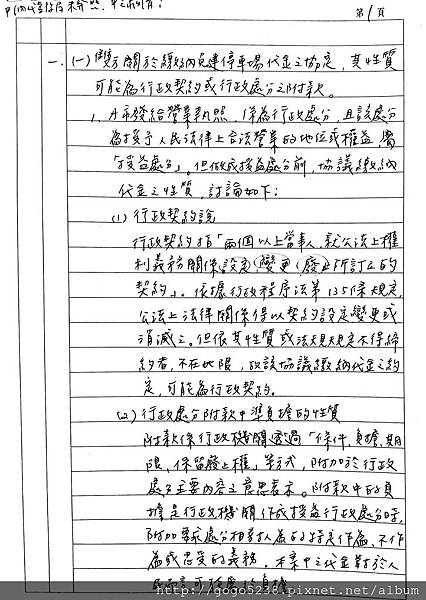 第1頁
一、(一)雙方關於繳納免建停車場代金之協定，其性質
可能為行政契約或行政處分之附款。
1、A市發給營業執照，係為行政處分，且該處分
為授予人民法律上合法營業的地位或權益，屬
「授益處分」。但做成授益處分前，協議繳納
代金之性質，討論如下：
(1)行政契約說
行政契約指「兩個以上當事人，就公法上權
利義務關係設定、變更、廢止所訂立的
契約」。依據行政程序法第135條規定，
公法上法律關係得以契約設定變更或
消滅之。但依其性質或法規規定不得締
約者，不在此限，故該協議繳納代金之約
定，可能為行政契約。
(2)行政處分附款中準負擔的性質
附款係行政機關透過「條件、負擔、期
限、保留廢止權」等方式，附加於行政
處分主要內容之意思表示。附款中的負
擔是行政機關作成授益行政處分時，
附加要求處分相對人為的特定作為、不作
為或忍受的義務，本案中之代金對於人
民而言可能屬於負擔
http://gogo5238.pixnet.net/album